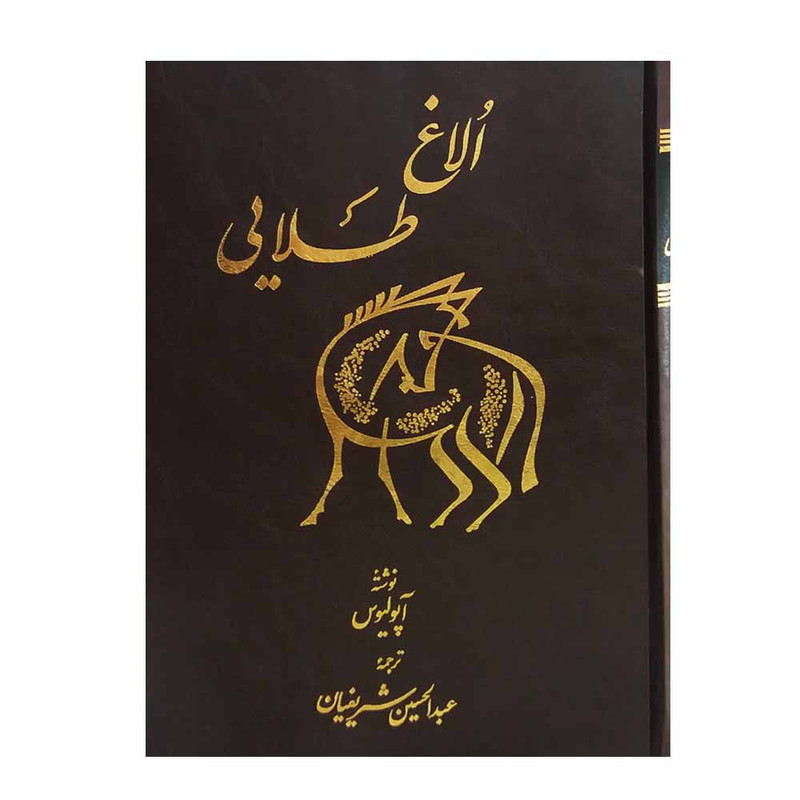 اُلاغ
طلایی
نوشتهٔ
آپولیوس
ترجمهٔ
عبدالحسین شریفیان